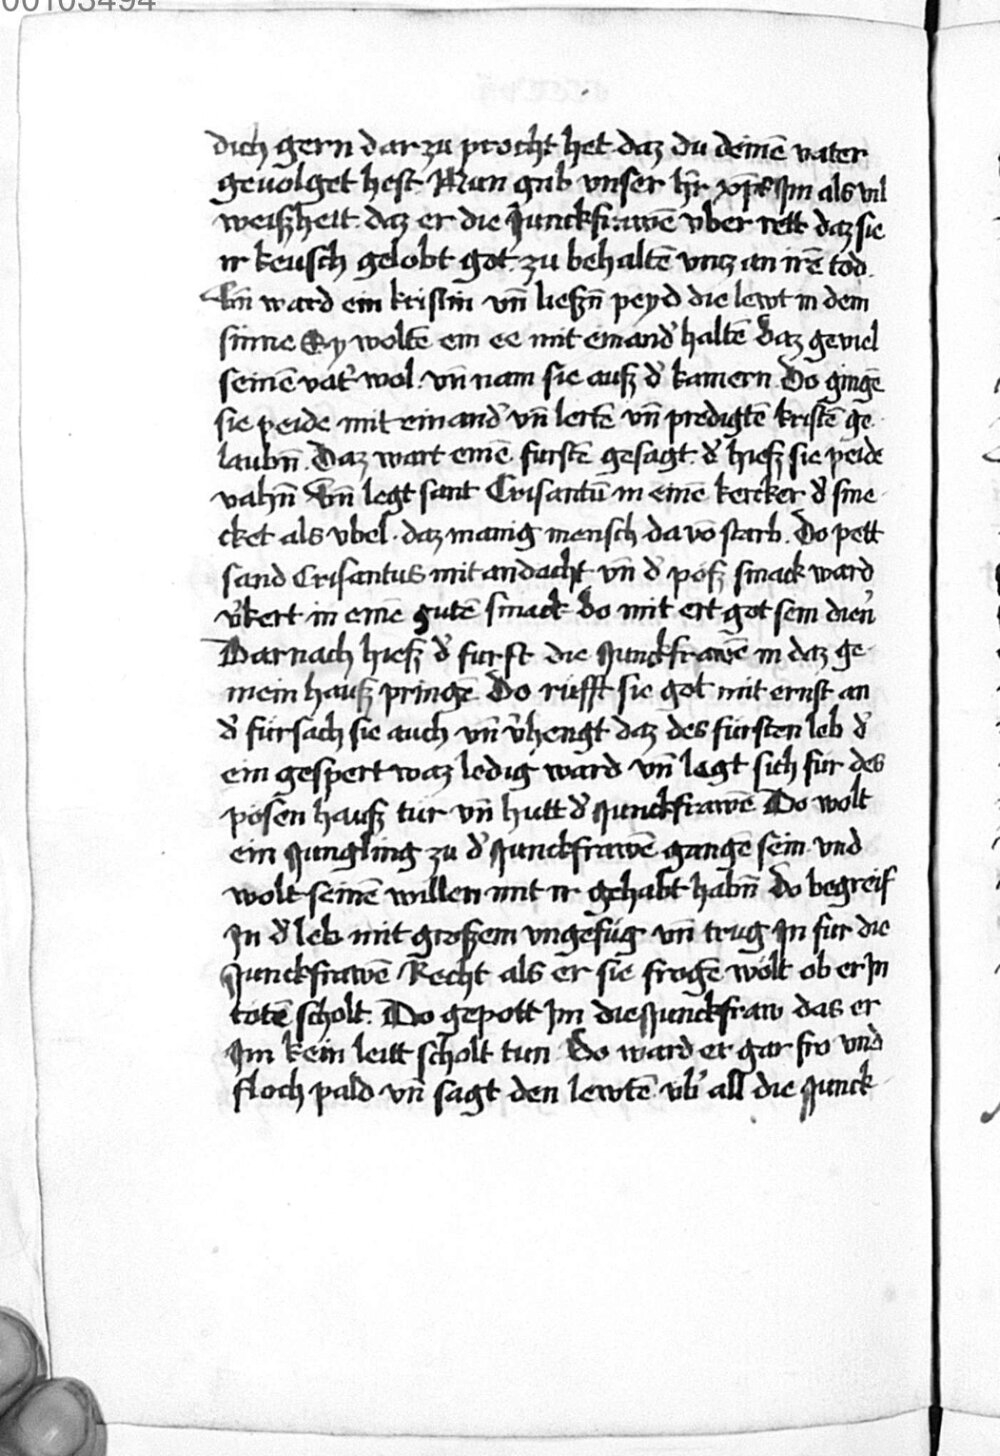 00103494
dich gern dar zu procht het daz du deinē vater
geuolget hest Nun gab vnser hr̄ xp̄s Im als vil
weiszheit daz er die Junckfrawē vber rett daz sie
ir keusch gelobt got zu behaltē vntz an irē tod
Vn̄ ward ein kristin vn̄ lieszn̄ peyd die lewt in dem
sinne Sy woltē ein ee mit einand' haltē daz geviel
seinē vat' wol vn̄ nam sie ausz d' kamern Do gingē
sie peide mit einand' vn̄ lertē vn̄ predigtē kristē ge
laubn̄ Daz wart einē furstē gesagt d' hiesz sie peide
vahn̄ Vn̄ legt sant Crisantū in einē kercker d' sme
cket als vbel daz manig mensch da vō starb Do pett
sand Crisantus mit andacht vn̄ d' pösz smack ward
v'kert in einē gutē smack do mit ert got sein dien'
Darnach hiesz d' furst die Junckfrawē in daz ge
mein hausz pringē Do rufft sie got mit ernst an
d' fürsach sie auch vn̄ v'hengt daz des fürsten leb d'
ein gespert waz ledig ward vn̄ legt sich für des
pösen hausz tür vn̄ hutt d' Junckfrawē Do wolt
ein Jungling zu d' Junckfrawē gangē sein vnd
wolt seinē willen mit ir gehabt habn̄ Do begreif
In d' leb mit groszem vngefüg vn̄ trug In fur die
Junckfrawē Recht als er sie frogē wolt ob er In
totē scholt Do gepott Im die Junckfraw das er
Im kein leitt scholt tun Do ward er gar fro vnd
floch pald vn̄ sagt den lewtē vb' all die Junck